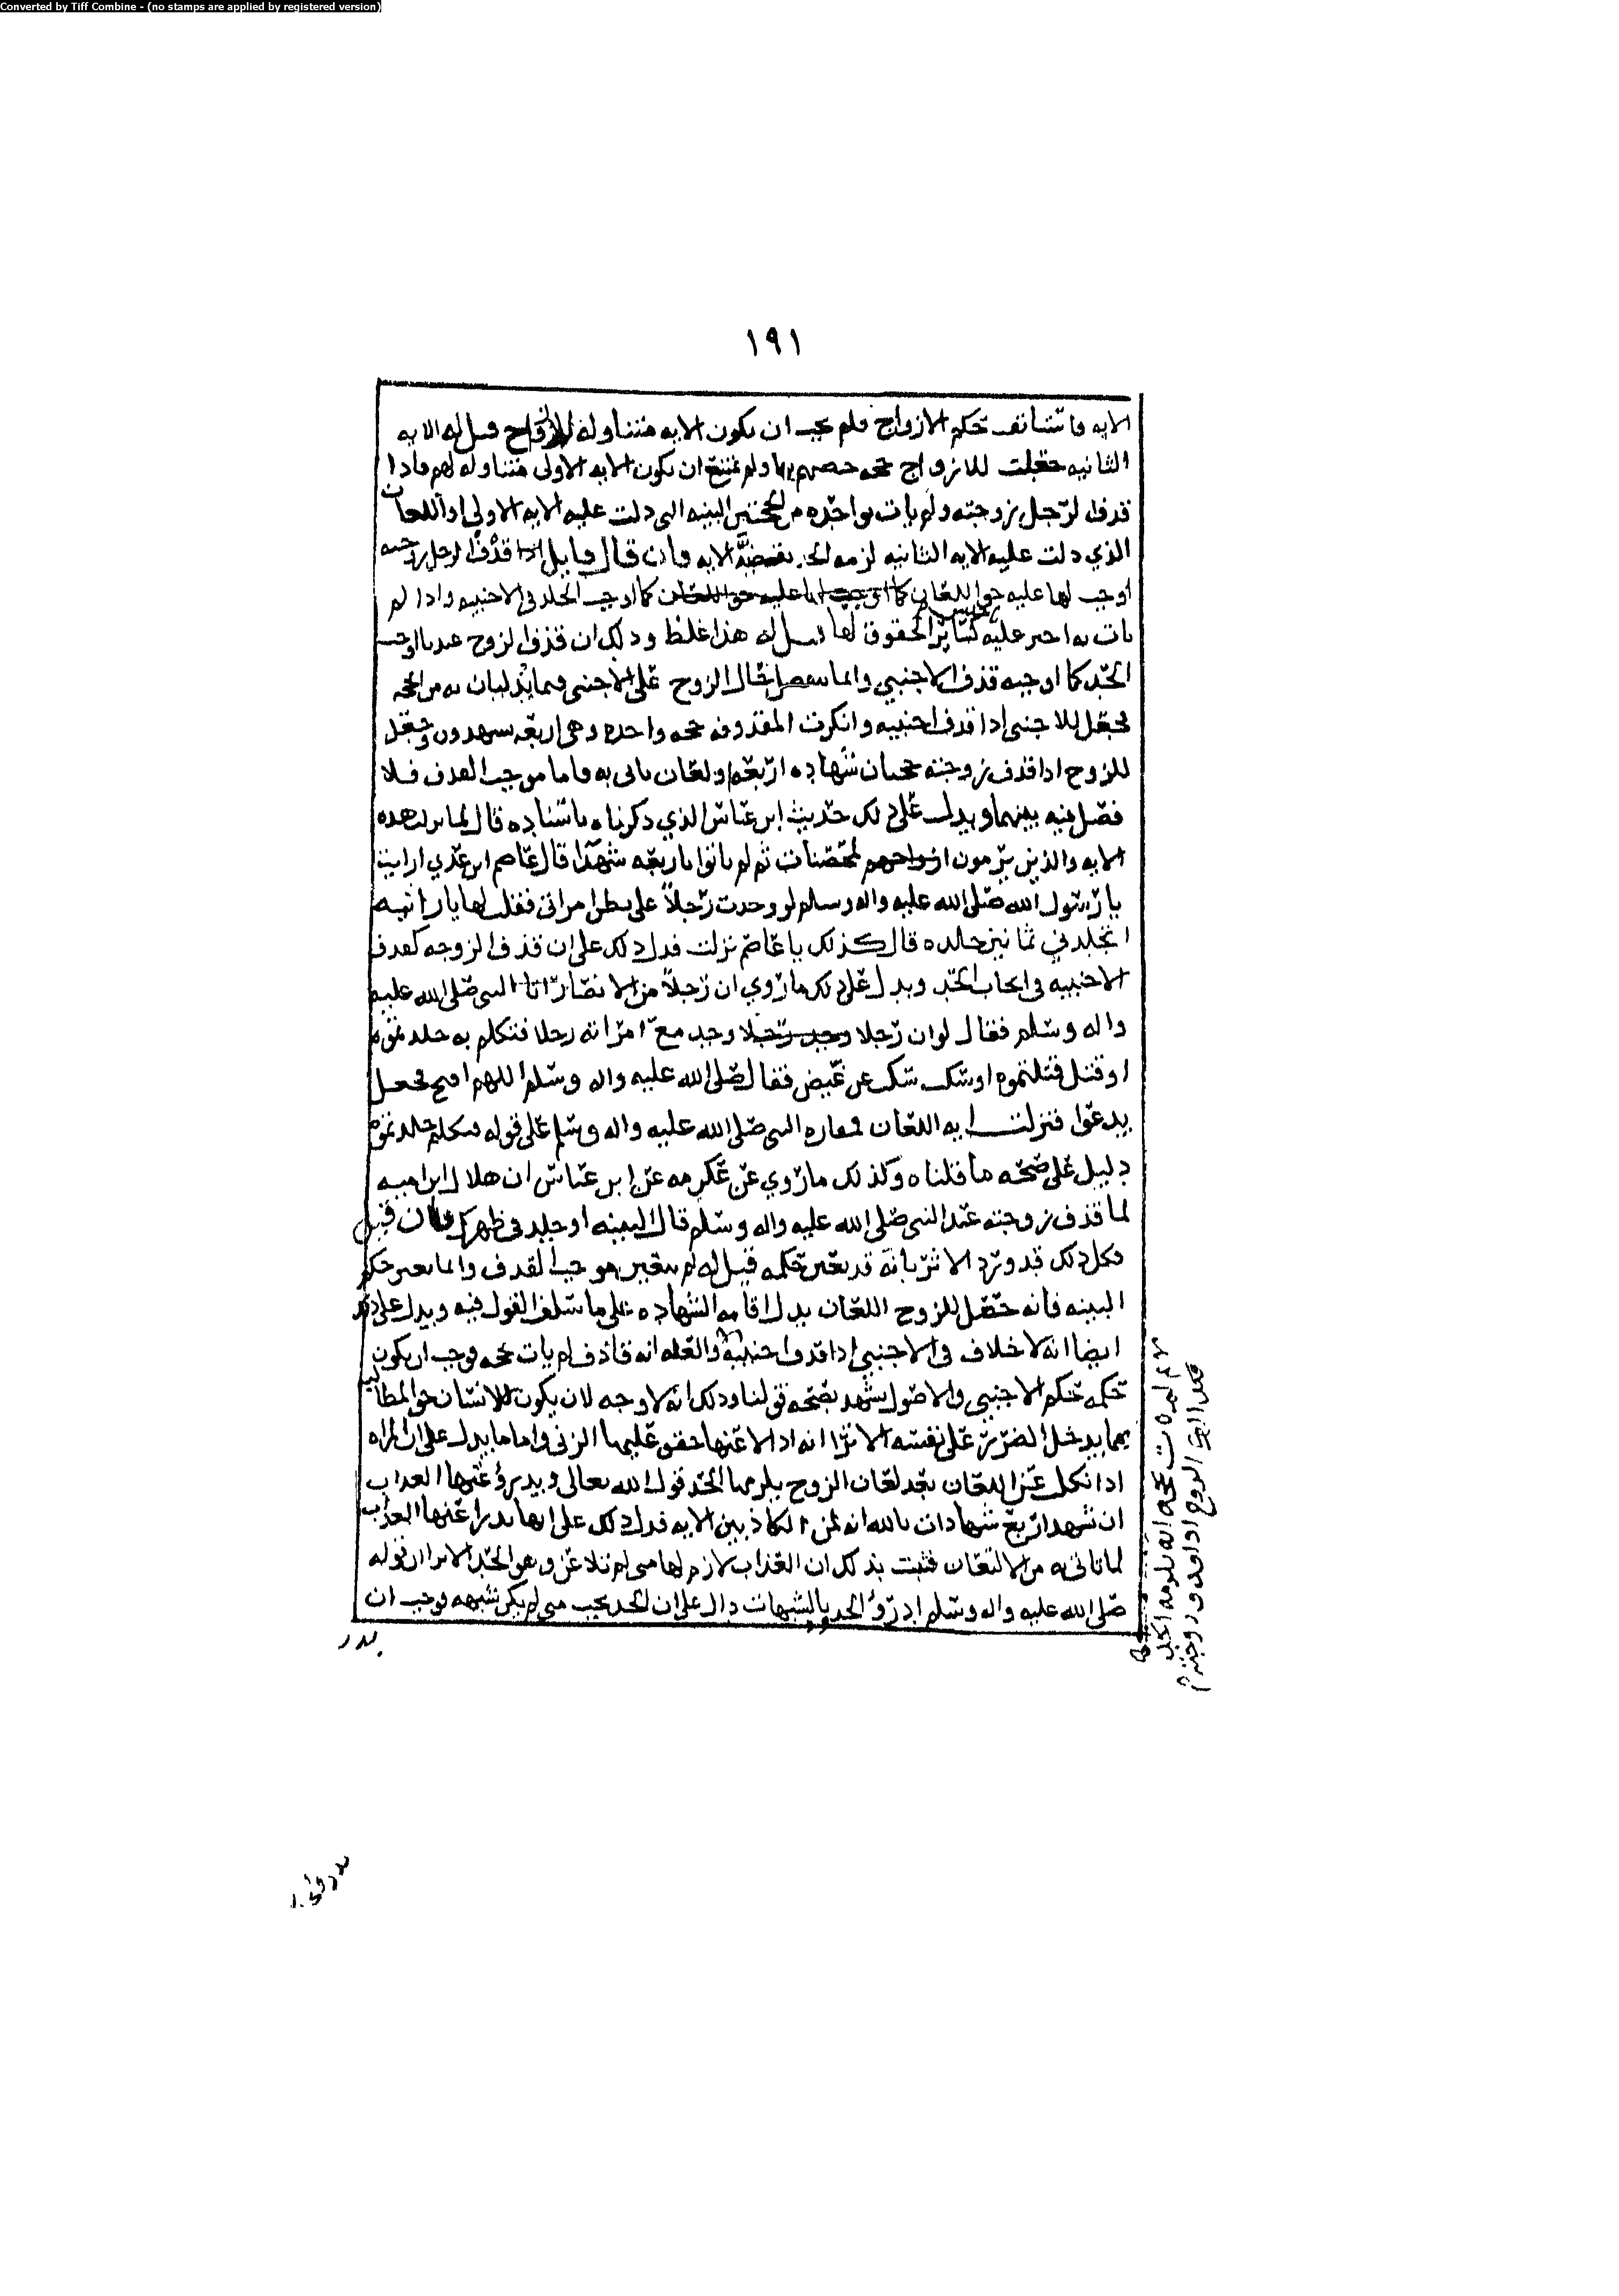 Converted by Tiff Combine - (no stamps are applied by registered version)
١٩١
الايه فاستانف حكم الازواج فلم يجب ان يكون الايه متناوله للازواج قيل له الايه
الثانيه جعلت للازواج حجه خصهم بها ولم تمنع ان يكون الايه الاولى متناوله لهم فاذا
قذف الرجل زوجته ولم يات بواحده من الحجتين البينه التي دلت عليه الايه الاولى او اللعان
الذي دلت عليه الايه الثانيه لزمه الحد بقضيه الايه فان قال قايل اذا قذف الرجل زوجته
اوجب لها عليه حق اللعان كما اوجب الجلد في الاجنبيه واذا لم
يات به احبر عليه كسائر الحقوق لها قيل له هذا غلط وذلك ان قذف الزوج عندنا اوجب
الحد كما اوجبه قذف الاجنبي وانما ينفصل حال الزوج على الاجنبي فيما يدليان به من الحجه
فجعل للاجنبي اذا قذف اجنبيه وانكرت المقذوفه حجه واحده وهي اربعه يشهدون وجعل
للزوج اذا قذف زوجته حجتان شهاده اربعه او لعان ياتي به فاما موجب القذف فلا
فصل فيه بينهما ويدل على ذلك حديث ابن عباس الذي ذكرناه باسناده قال لما نزلت هذه
الايه والذين يرمون المحصنات ثم لم ياتوا باربعه شهدا قال عاصم ابن عدي ارايت
يا رسول الله صلى الله عليه واله وسلم لو وجدت رجلاً على بطن امراتي فقلت لها يا زانيه
اتجلدني ثمانين جلده قال كذلك يا عاصم نزلت فدل ذلك على ان قذف الزوجه كقذف
الاجنبيه في ايجاب الحد ويدل على ذلك ما روي ان رجلاً من الانصار اتا النبي صلى الله عليه
واله وسلم فقال لو ان رجلا وجد مع امراته رجلا فتكلم به جلدتموه
او قتل قتلتموه او سكت سكت عن غيض فقال صلى الله عليه واله وسلم اللهم افتح فجعل
يدعوا فنزلت ايه اللعان فقاره النبي صلى الله عليه واله وسلم على قوله يتكلم جلدتموه
دليل على صحه ما قلناه وكذلك ما روي عن عكرمه عن ابن عباس ان هلال ابن اميه
لما قذف زوجته عند النبي صلى الله عليه واله وسلم قال البينه او جلد في ظهرك فان قيل
فكل ذلك قد ورد الا ثر بانه قد يغير حكمه قيل له لم يتغير موجب القذف وانما تغير حكم
البينه فانه جعل للزوج اللعان بدل اقامه الشهاده على ما سلف القول فيه ويدل على ذلك
ايضا انه لا خلاف في الاجنبي اذا قذف اجنبيه والعله انه قاذف لم يات بحجه فوجب ان يكون
حكمه حكم الاجنبي والاصول تشهد بصحه قولنا وذلك انه لا وجه لان يكون للانسان حق المطالبه
بما يدخل الضرر على نفسه الا ترا انه اذا لاعنها حقق عليها الزنى واما ما يدل على ان المراه
اذا نكلت عن اللعان بعد لعان الزوج يلزمها الحد قول الله تعالى ويدرؤ عنها العذاب
ان تشهد اربع شهادات بالله انه لمن الكاذبين الايه فدل ذلك على انها تدرا عنها العذاب
لما تاتي به من الالتعان فثبت بذلك ان العذاب لازم لها متى لم تلاعن وهو الحد الا ترا ان قوله
صلى الله عليه واله وسلم ادرؤ الحدود بالشبهات دال على ان الحد يجب متى لم يكن شبهه فوجب ان
لم يات بحجه انه يلزمه الحد
الزوج اذا قذف زوجته